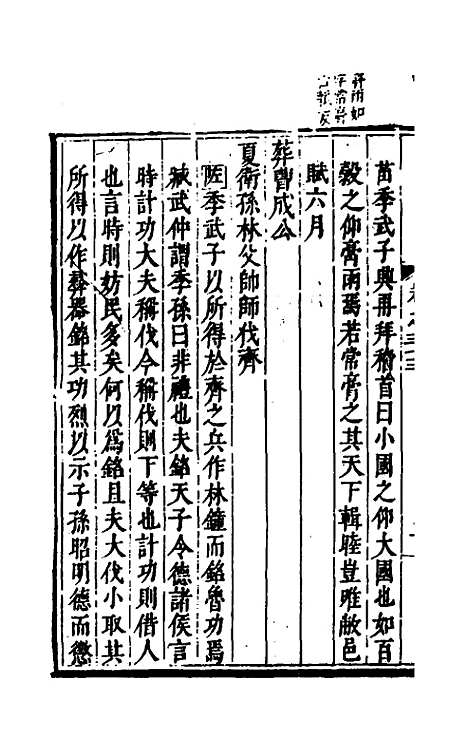 苗季武子興再拜稽首曰小國之仰大國也如百
穀之仰膏雨焉若常膏之其天下輯睦豈唯敝邑
賦六月
葬曹成公
夏衛孫林父帥師伐齊
左季武子以所得於齊之兵作林鐘而銘魯功焉
臧武仲謂季孫曰非禮也夫銘天子令德諸侯言
時計功大夫稱伐今稱伐則下等也計功則借人
也言時則妨民多矣何以爲銘且夫大伐小取其
所得以作彝器銘其功烈以示子孫昭明德而懲